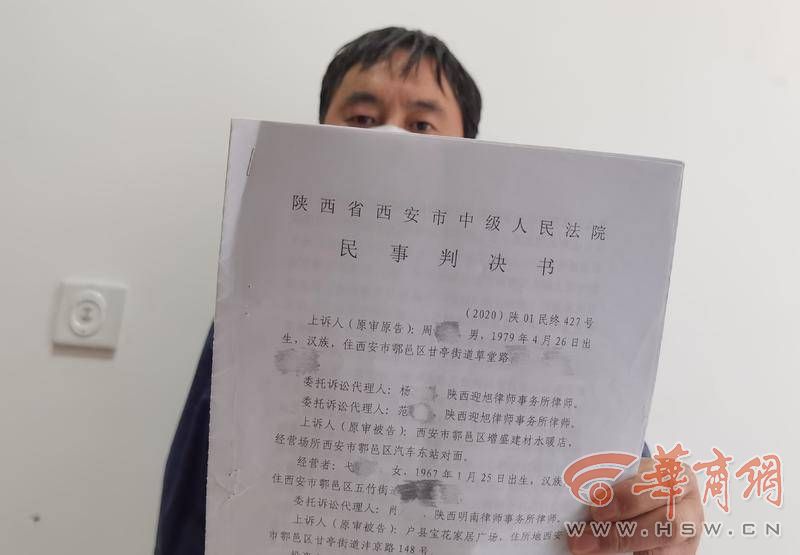 陕西省西安市中级人民法院
民事判决书
(2020)陕01民终427号
上诉人(原审原告):周 男,1979年4月26日出
生,汉族,住西安市鄠邑区甘亭街道草堂路
委托诉讼代理人:杨 ,陕西迎旭律师事务所律师。
委托诉讼代理人:范 ,陕西迎旭律师事务所律师。
上诉人(原审被告):西安市鄠邑区增盛建材水暖店,
经营场所西安市鄠邑区汽车东站对面。
经营者:弋 女,1967年1月25日出生,汉族
住西安市鄠邑区五竹街
委托诉讼代理人:肖 ,陕西明南律师事务所律师。
上诉人(原审被告):户县宝花家居广场,住所地西安
市鄠邑区甘亭街道沣京路148号
華商網
WWW.HSW.CN